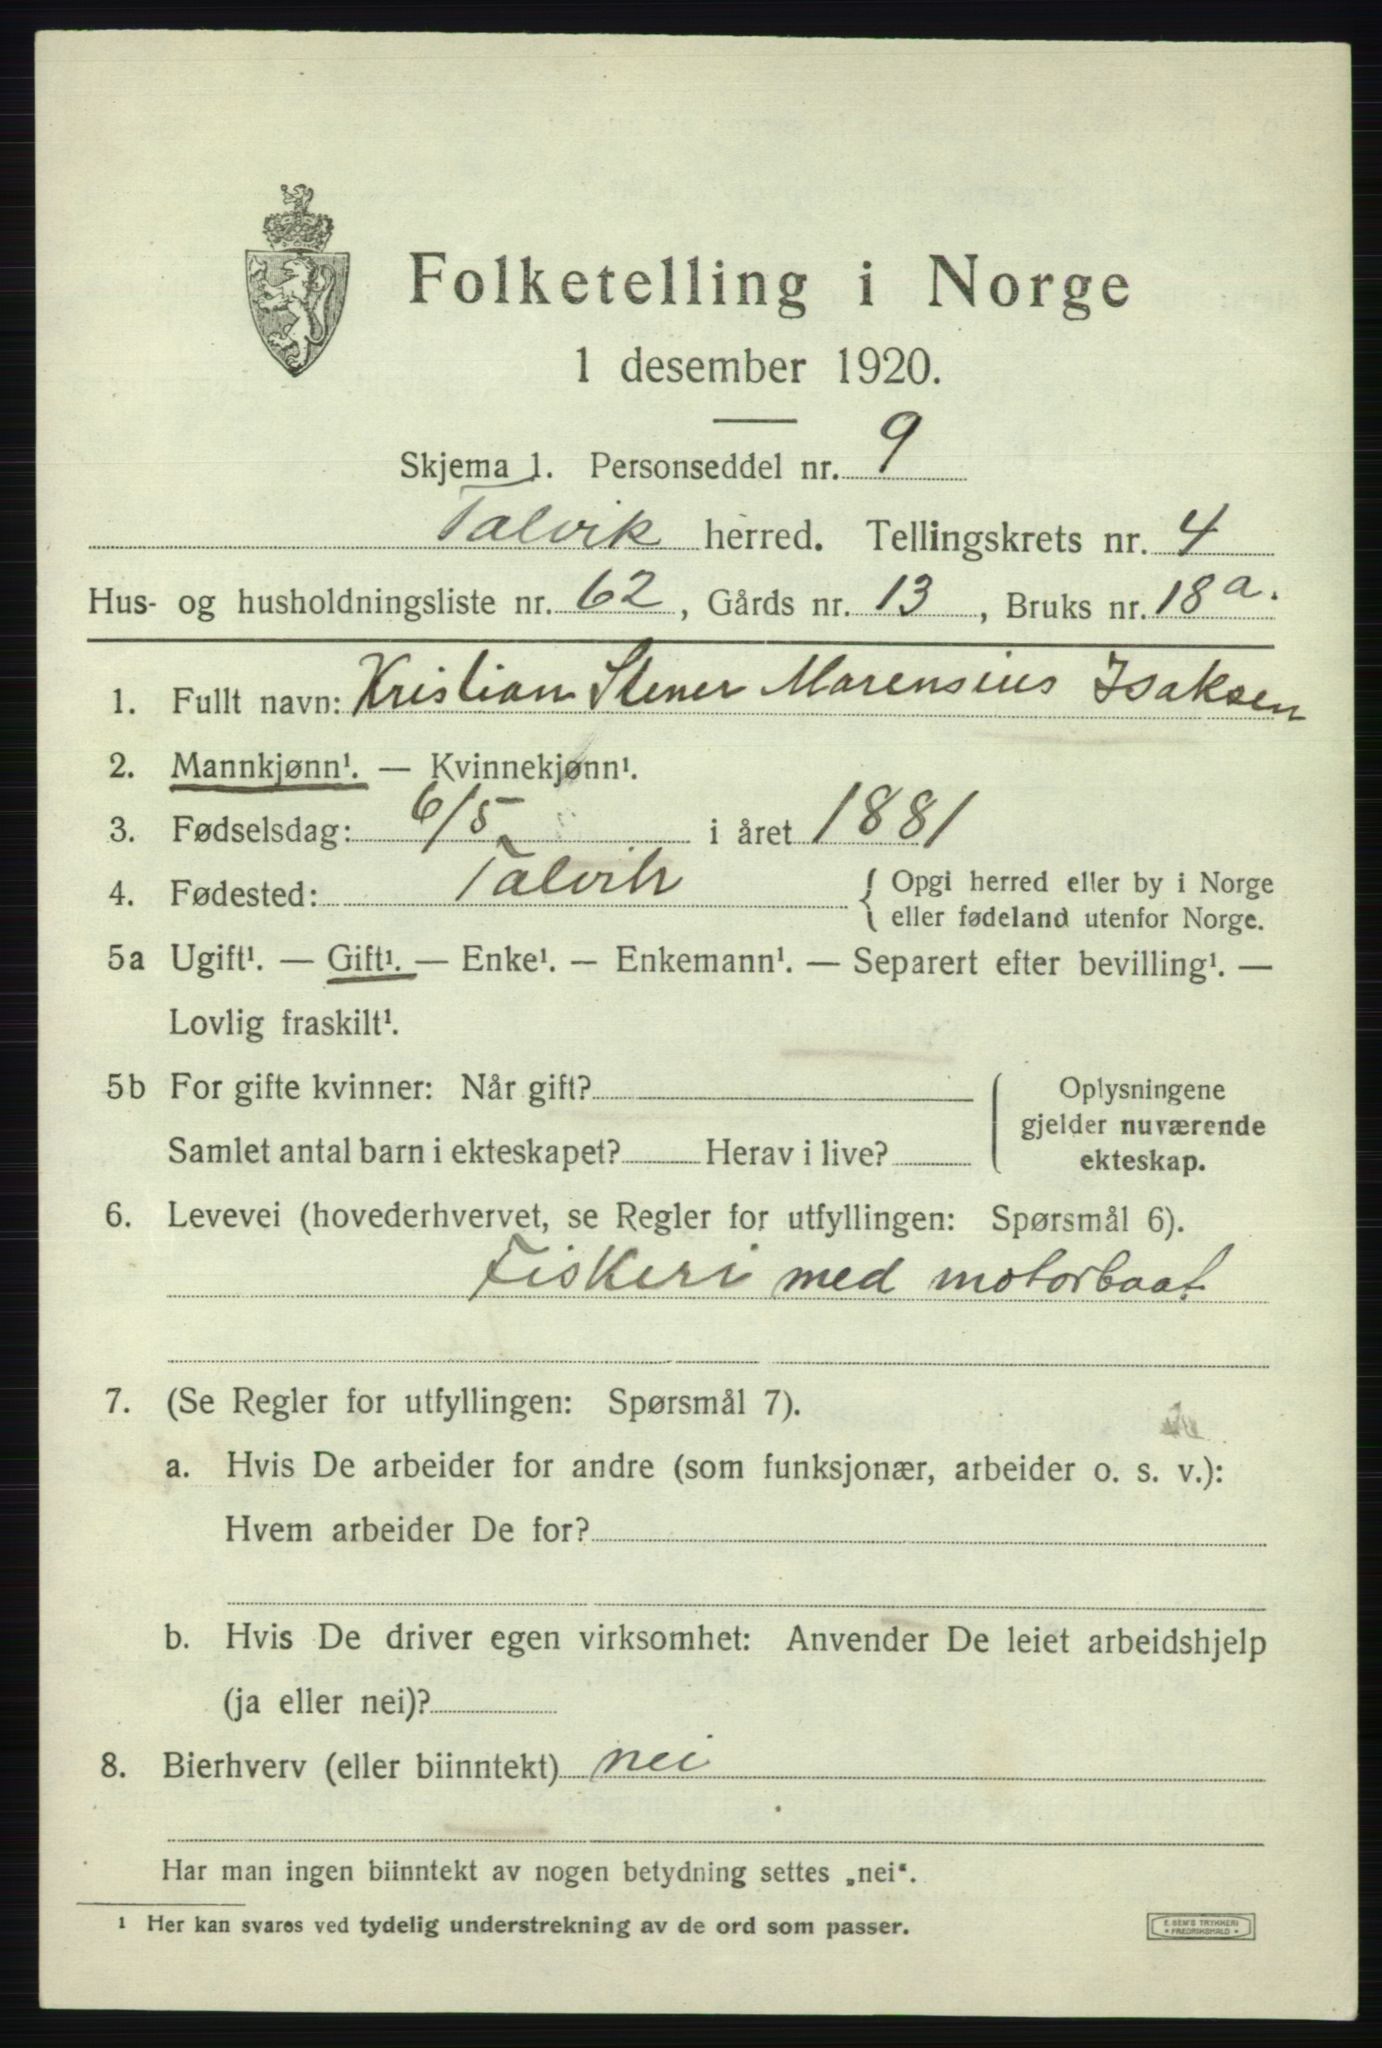 Folketelling i Norge
1 desember 1920.
Skjema 1. Personseddel nr. 9
Talvik herred. Tellingskrets nr. 4
Hus- og husholdningsliste nr. 62, Gårds nr. 13, Bruks nr. 18 a.
1. Fullt navn: Kristian Stener Marensius Isaksen
2. Mannkjønn¹. — Kvinnekjønn¹.
3. Fødselsdag: 6/5 i året 1881
4. Fødested: Talvik { Opgi herred eller by i Norge
eller fødeland utenfor Norge.
5a Ugift¹. — Gift¹. — Enke¹. — Enkemann¹. — Separert efter bevilling¹. —
Lovlig fraskilt¹.
5b For gifte kvinner: Når gift?
Samlet antal barn i ekteskapet? Herav i live?
Oplysningene
gjelder nuværende
ekteskap.
6. Levevei (hovederhvervet, se Regler for utfyllingen: Spørsmål 6).
Fiskeri med motorbaat
7. (Se Regler for utfyllingen: Spørsmål 7).
a. Hvis De arbeider for andre (som funksjonær, arbeider o. s. v.):
Hvem arbeider De for?
b. Hvis De driver egen virksomhet: Anvender De leiet arbeidshjelp
(ja eller nei)?
8. Bierhverv (eller biinntekt) nei
Har man ingen biinntekt av nogen betydning settes „nei“.
¹ Her kan svares ved tydelig understrekning av de ord som passer.
E. SEM'S TRYKKERI
• FREDRIKSHALD •